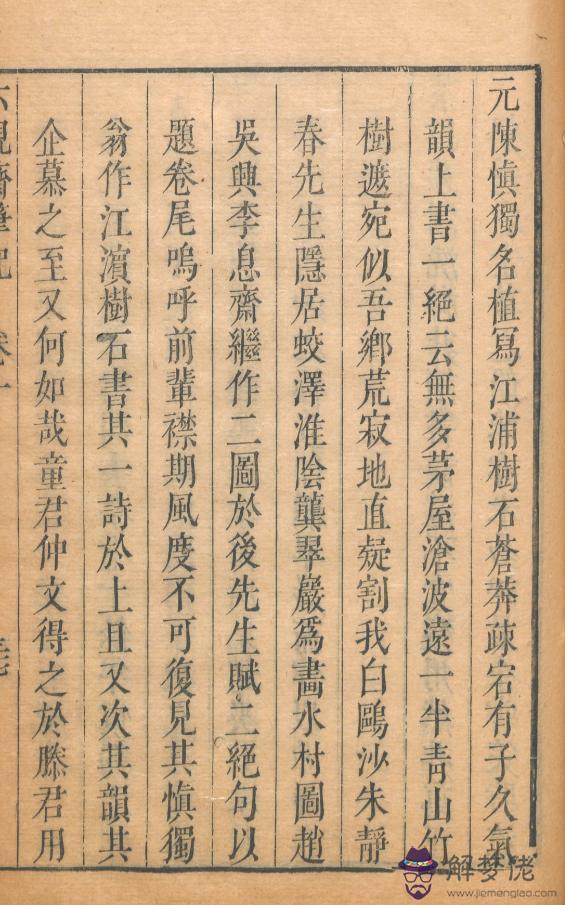 元陳慎獨名植寫江浦樹石蒼莽疎宕有子久氣
韻上書一絕云無多茅屋滄波遠一半青山竹
樹遮宛似吾鄉荒寂地直疑割我白鷗沙朱靜
春先生隱居蛟澤淮陰龔翠巖為畵水村圖趙
吳興李息齋繼作二圖於後先生賦二絕句以
題卷尾嗚呼前輩襟期風度不可復見其慎獨
翁作江濵樹石書其一詩於上且又次其韻其
企慕之至又何如哉童君仲文得之於滕君用
六硯齋筆記 卷一
解梦佬
www.jiemenglao.com